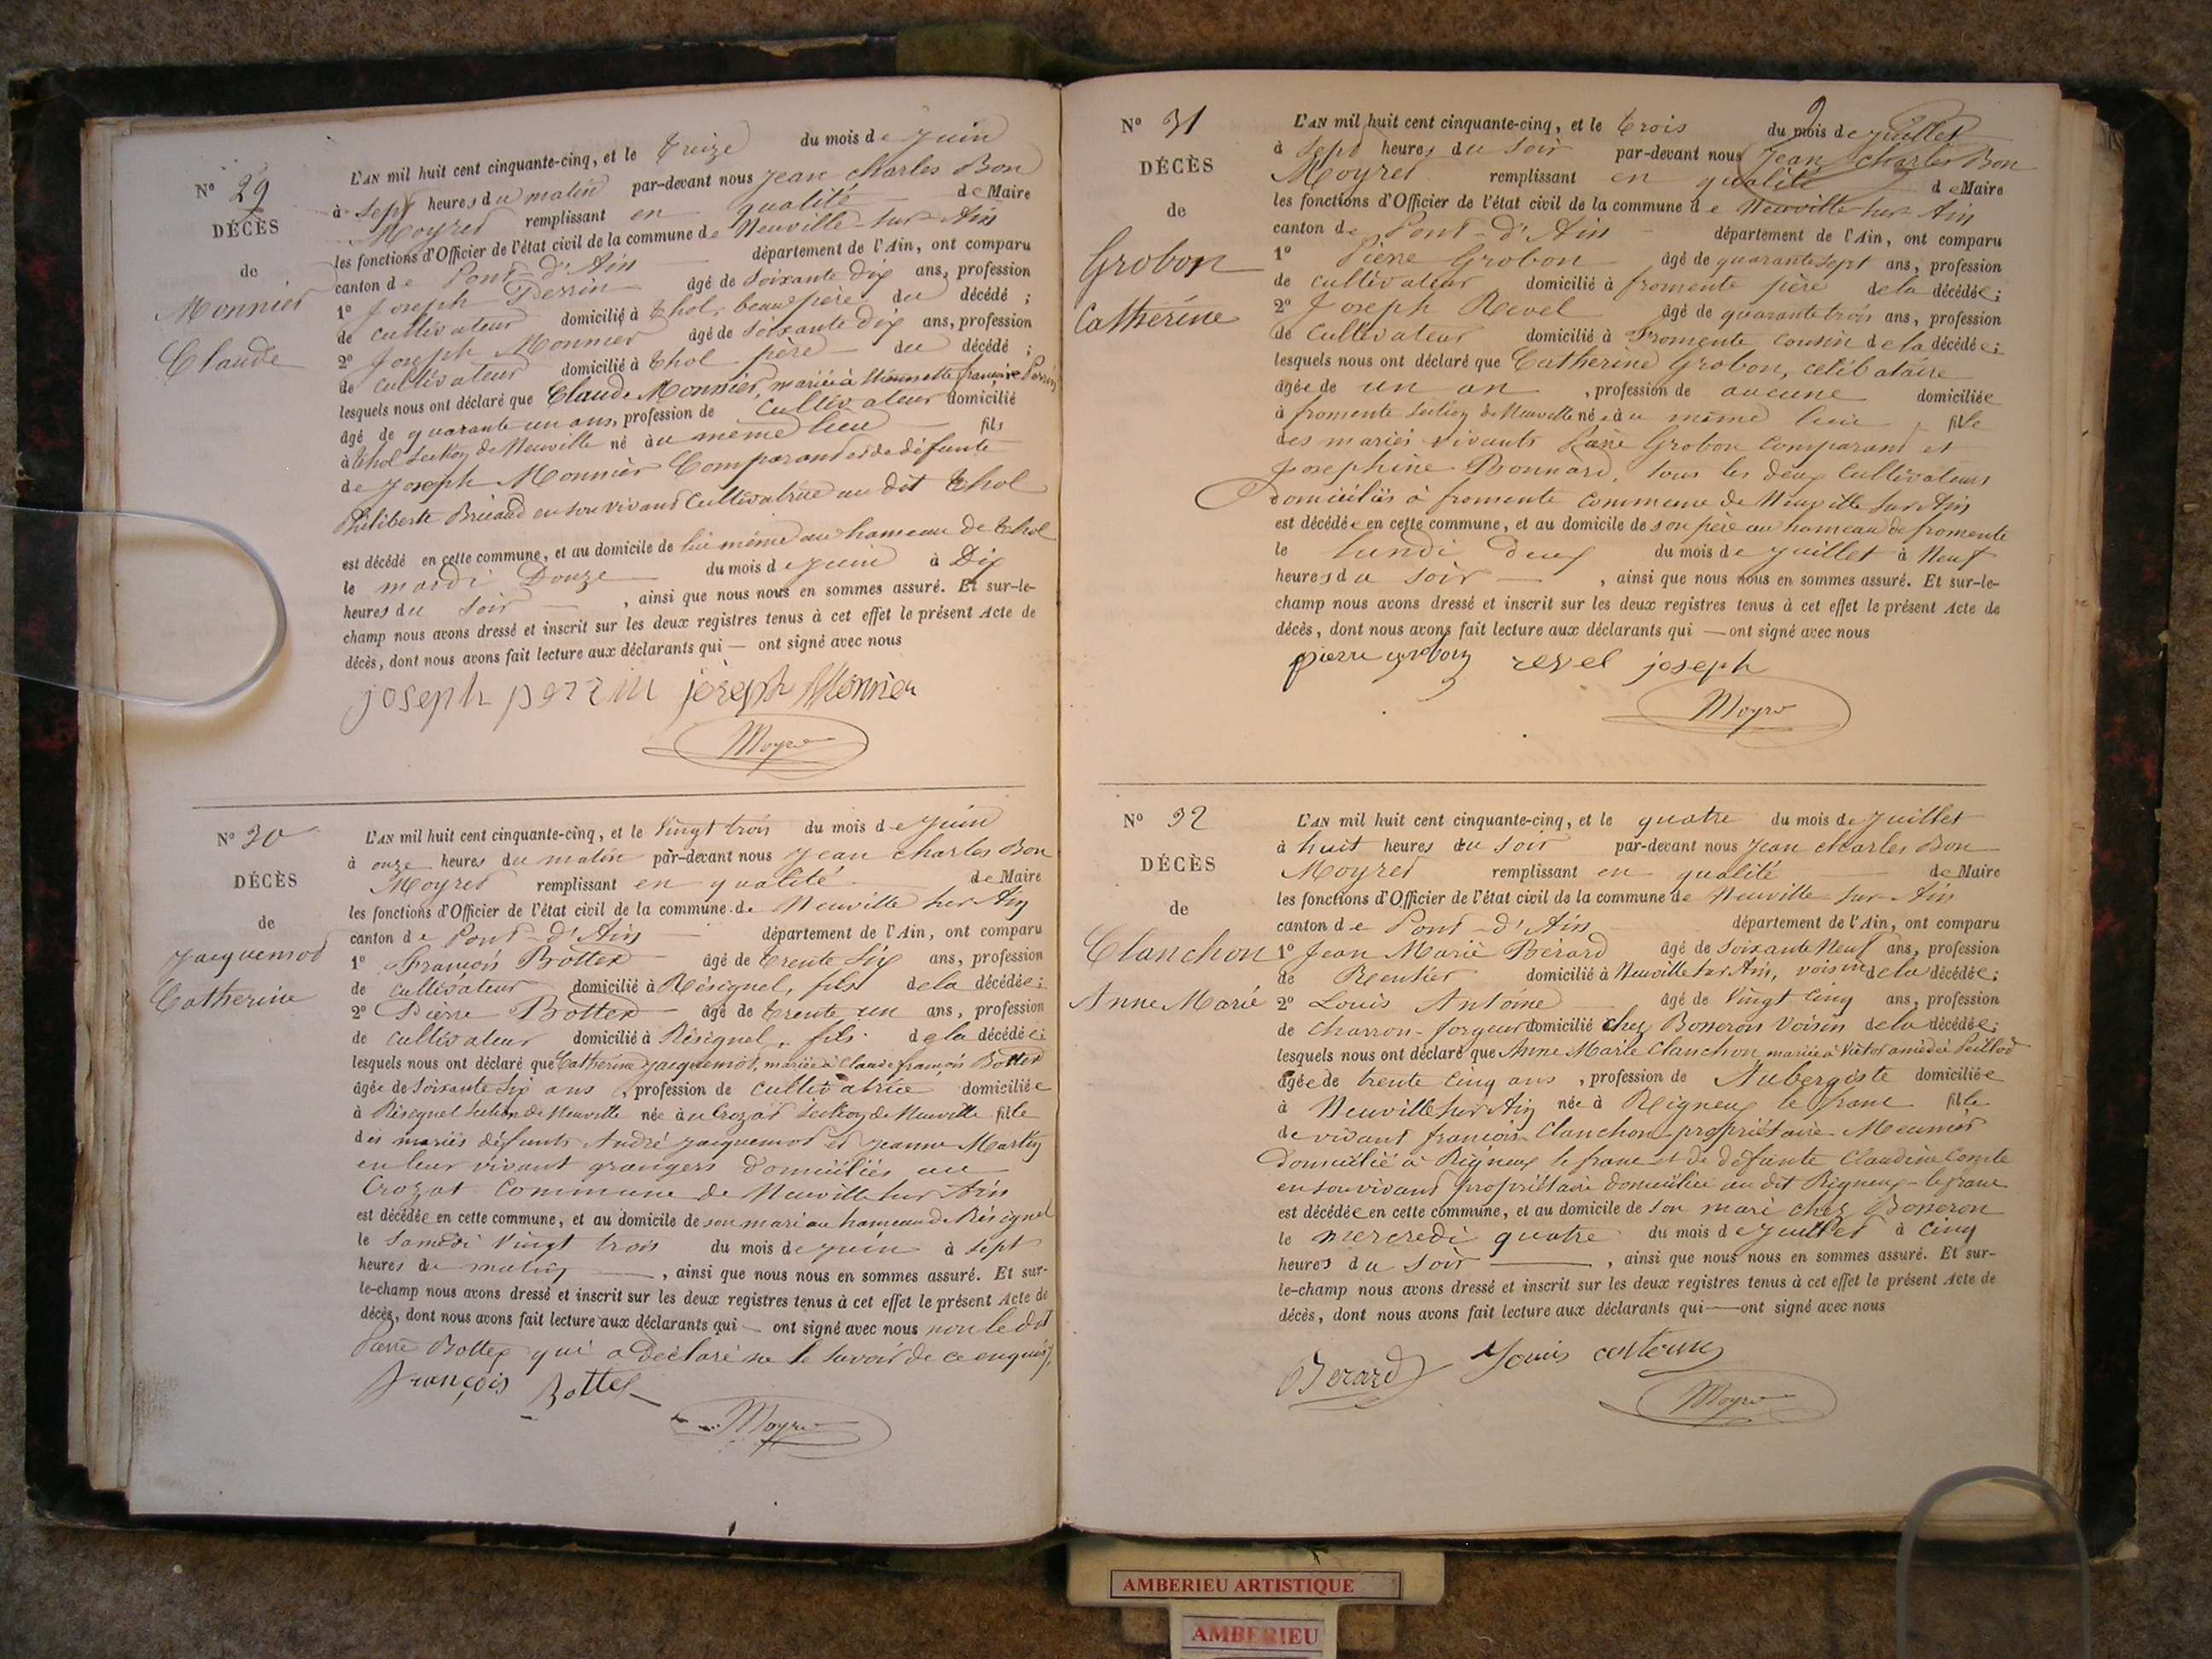 N° 29
DÉCÈS
de
Monnier
Claude
L'AN mil huit cent cinquante-cinq, et le treize du mois de juin
à sept heures du matin par-devant nous Jean Charles Bon
Moyret remplissant en qualité de Maire
les fonctions d'Officier de l'état civil de la commune de Neuville sur Ain
canton de Pont-d'Ain département de l'Ain, ont comparu
1° Joseph Perrin âgé de soixante dix ans, profession
de cultivateur domicilié à Thol, beau père du décédé ;
2° Joseph Monnier âgé de soixante dix ans, profession
de cultivateur domicilié à Thol père du décédé ;
lesquels nous ont déclaré que Claude Monnier, marié à Etiennette françoise Perrin
âgé de quarante un ans, profession de cultivateur domicilié
à Thol section de Neuville né au même lieu fils
de Joseph Monnier comparant et de défunte
Philiberte Briand en son vivant cultivatrice au dit Thol
est décédé en cette commune, et au domicile de lui même au hameau de Thol
le mardi Douze du mois de juin à Dix
heures du soir , ainsi que nous nous en sommes assuré. Et sur-le-
champ nous avons dressé et inscrit sur les deux registres tenus à cet effet le présent Acte de
décès, dont nous avons fait lecture aux déclarants qui — ont signé avec nous
joseph perrin joseph Monnier
Moyret
N° 30
DÉCÈS
de
Jacquemod
Catherine
L'AN mil huit cent cinquante-cinq, et le vingt trois du mois de juin
à onze heures du matin par-devant nous Jean Charles Bon
Moyret remplissant en qualité de Maire
les fonctions d'Officier de l'état civil de la commune de Neuville sur Ain
canton de Pont-d'Ain département de l'Ain, ont comparu
1° François Bottex âgé de trente six ans, profession
de cultivateur domicilié à Résignel, fils de la décédée ;
2° Pierre Bottex âgé de trente un ans, profession
de cultivateur domicilié à Résignel, fils de la décédée ;
lesquels nous ont déclaré que Catherine Jacquemod, mariée à Claude françois Bottex
âgée de soixante six ans, profession de cultivatrice domiciliée
à Résignel section de Neuville née au Crozat section de Neuville fille
des mariés défunts André Jacquemod et Jeanne Martin
en leur vivant grangers domiciliés au
Crozat commune de Neuville sur Ain
est décédée en cette commune, et au domicile de son mari au hameau de Résignel
le samedi vingt trois du mois de juin à sept
heures du matin , ainsi que nous nous en sommes assuré. Et sur-
le-champ nous avons dressé et inscrit sur les deux registres tenus à cet effet le présent Acte de
décès, dont nous avons fait lecture aux déclarants qui — ont signé avec nous non le dit
Pierre Bottex qui a déclaré ne le savoir de ce enquis,
François Bottex
Moyret
N° 31
DÉCÈS
de
Grobon
Catherine
L'AN mil huit cent cinquante-cinq, et le trois du mois de juillet
à sept heures du soir par-devant nous Jean Charles Bon
Moyret remplissant en qualité de Maire
les fonctions d'Officier de l'état civil de la commune de Neuville sur Ain
canton de Pont-d'Ain département de l'Ain, ont comparu
1° Pierre Grobon âgé de quarante sept ans, profession
de cultivateur domicilié à fromente père de la décédée ;
2° Joseph Revel âgé de quarante trois ans, profession
de cultivateur domicilié à Fromente cousin de la décédée ;
lesquels nous ont déclaré que Catherine Grobon, célibataire
âgée de un an , profession de aucune domiciliée
à fromente section de Neuville née au même lieu fille
des mariés vivants Pierre Grobon comparant et
Josephine Bonnard, tous les deux cultivateurs
domiciliés à fromente commune de Neuville sur Ain
est décédée en cette commune, et au domicile de son père au hameau de fromente
le lundi deux du mois de juillet à Neuf
heures du soir , ainsi que nous nous en sommes assuré. Et sur-le-
champ nous avons dressé et inscrit sur les deux registres tenus à cet effet le présent Acte de
décès, dont nous avons fait lecture aux déclarants qui — ont signé avec nous
pierre grobon revel joseph
Moyret
N° 32
DÉCÈS
de
Clanchon
Anne Marie
L'AN mil huit cent cinquante-cinq, et le quatre du mois de juillet
à huit heures du soir par-devant nous Jean Charles Bon
Moyret remplissant en qualité de Maire
les fonctions d'Officier de l'état civil de la commune de Neuville sur Ain
canton de Pont-d'Ain département de l'Ain, ont comparu
1° Jean Marie Bérard âgé de soixante Neuf ans, profession
de Rentier domicilié à Neuville sur Ain, voisin de la décédée ;
2° Louis Antoine âgé de vingt cinq ans, profession
de charron-forgeur domicilié chez Bosseron voisin de la décédée ;
lesquels nous ont déclaré que Anne Marie Clanchon mariée à Victor amédée Peillod
âgée de trente cinq ans , profession de Aubergiste domiciliée
à Neuville sur Ain née à Rigneux le franc fille
de vivant françois Clanchon propriétaire Meunier
domicilié à Rigneux le franc et de défunte Claudine Comte
en son vivant propriétaire domiciliée au dit Rigneux-le franc
est décédée en cette commune, et au domicile de son mari chez Bosseron
le mercredi quatre du mois de juillet à cinq
heures du soir , ainsi que nous nous en sommes assuré. Et sur-
le-champ nous avons dressé et inscrit sur les deux registres tenus à cet effet le présent Acte de
décès, dont nous avons fait lecture aux déclarants qui — ont signé avec nous
Berard Louis antoine
Moyret
AMBERIEU ARTISTIQUE
AMBERIEU